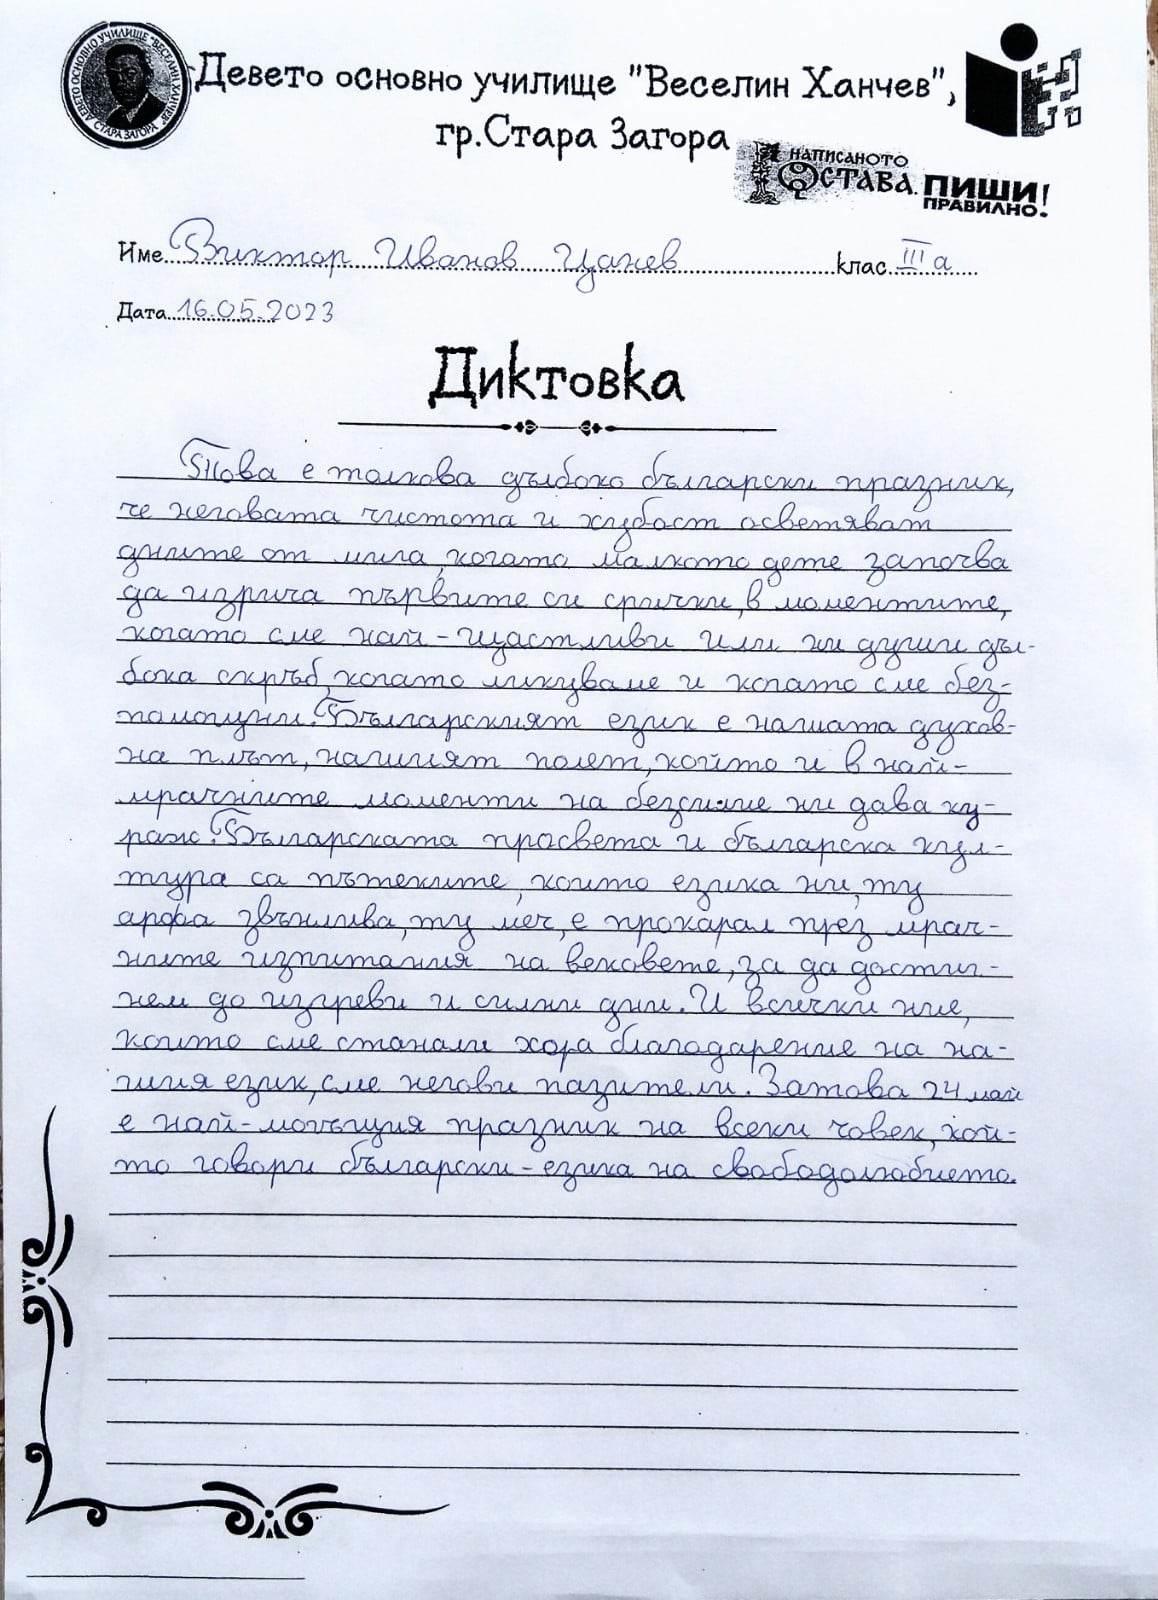 ДЕВЕТО ОСНОВНО УЧИЛИЩЕ "ВЕСЕЛИН ХАНЧЕВ" СТАРА ЗАГОРА
Девето основно училище "Веселин Ханчев",
гр.Стара Загора
НАПИСАНОТО
ОСТАВА. ПИШИ
ПРАВИЛНО!
Име Виктор Иванов Цанев клас III а
Дата 16.05.2023
Диктовка
Това е толкова дълбоко български празник,
че неговата чистота и хубост осветяват
дните от мига, когато малкото дете започва
да изрича първите си срички, в моментите,
когато сме най-щастливи или ни души дъл-
бока скръб, когато ликуваме и когато сме без-
помощни. Българският език е нашата духов-
на плът, нашият полет, който и в най-
мрачните моменти на безсилие ни дава ку-
раж. Българската просвета и българска кул-
тура са пътеките, които езика ни, ту
арфа звънлива, ту меч, е прокарал през мрач-
ните изпитания на вековете, за да достиг-
нем до изгреви и силни дни. И всички ние,
които сме станали хора благодарение на на-
шия език, сме негови пазители. Затова 24 май
е най-могъщия празник на всеки човек, кой-
то говори български - езика на свободолюбието.